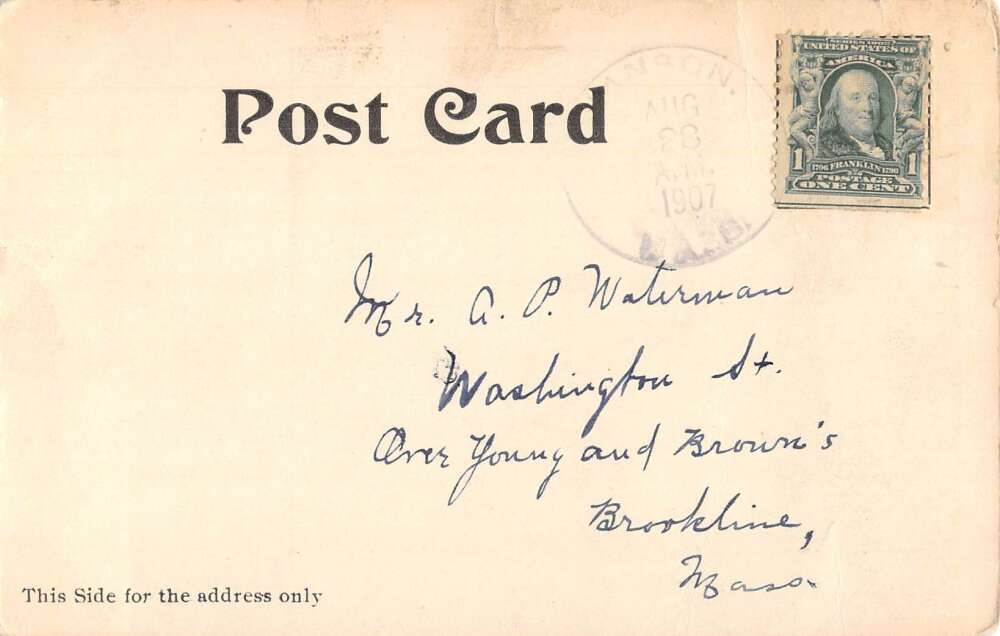 Post Card
AUG
28
A.M.
1907
MASS.
SERIES 1902
UNITED STATES OF
AMERICA
1 1706 FRANKLIN 1790 1
POSTAGE
ONE CENT
Mr. A. P. Waterman
Washington St.
Over Young and Brown's
Brookline,
Mass.
This Side for the address only